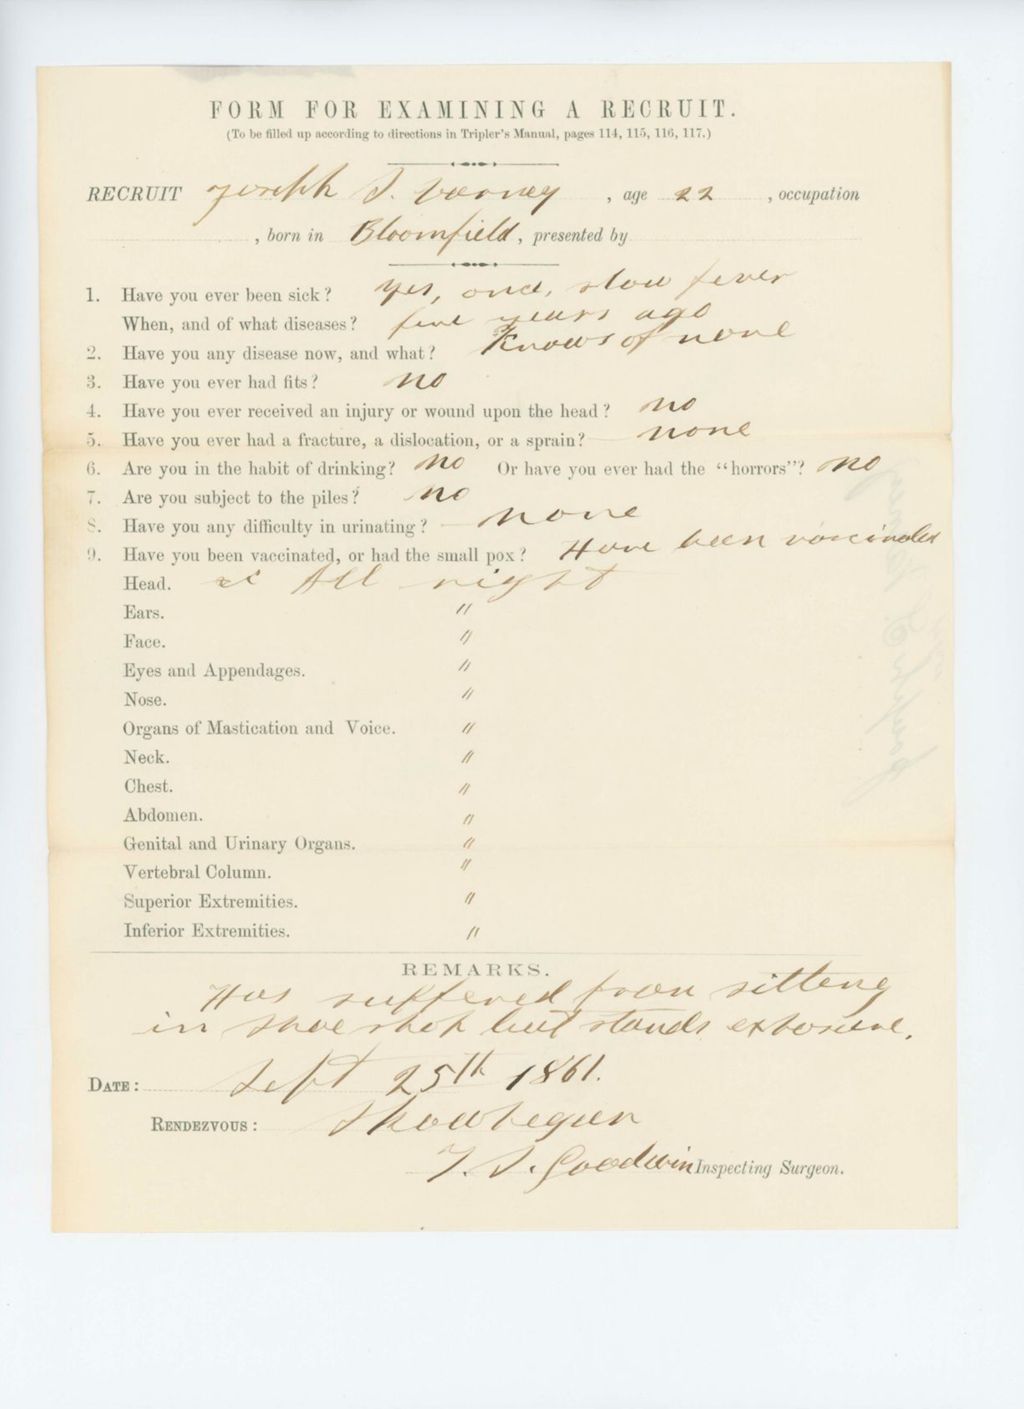 FORM FOR EXAMINING A RECRUIT.
(To be filled up according to directions in Tripler's Manual, pages 114, 115, 116, 117.)
RECRUIT Joseph S. Varney , age 22 , occupation
, born in Bloomfield, presented by
1. Have you ever been sick? Yes, once, slow fever
When, and of what diseases? five years ago
2. Have you any disease now, and what? Knows of none
3. Have you ever had fits? no
4. Have you ever received an injury or wound upon the head? no
5. Have you ever had a fracture, a dislocation, or a sprain? none
6. Are you in the habit of drinking? no Or have you ever had the "horrors"? no
7. Are you subject to the piles? no
8. Have you any difficulty in urinating? none
9. Have you been vaccinated, or had the small pox? Have been vaccinated
Head. All right
Ears. "
Face. "
Eyes and Appendages. "
Nose. "
Organs of Mastication and Voice. "
Neck. "
Chest. "
Abdomen. "
Genital and Urinary Organs. "
Vertebral Column. "
Superior Extremities. "
Inferior Extremities. "
REMARKS.
Has suffered from sitting
in shoe shop but stands exposure.
DATE: Sept 25th 1861.
RENDEZVOUS: Skowhegan
Goodwin Inspecting Surgeon.